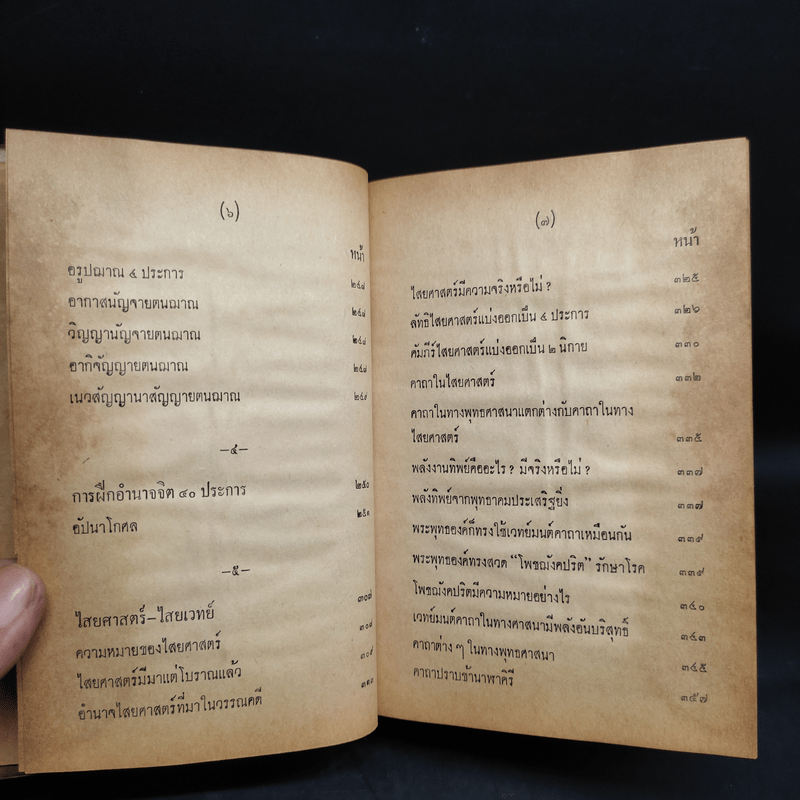 (๖)
หน้า
อรูปฌาณ ๔ ประการ ๒๔๗
อากาสนัญจายตนฌาณ ๒๔๗
วิญญานัญจายตนฌาณ ๒๔๗
อากิจัญญายตนฌาณ ๒๔๗
เนวสัญญานาสัญญายตนฌาณ ๒๔๙
—๔—
การฝึกอำนาจจิต ๔๐ ประการ ๒๕๐
อัปนาโกศล ๒๕๑
—๕—
ไสยศาสตร์–ไสยเวทย์ ๓๐๗
ความหมายของไสยศาสตร์ ๓๐๘
ไสยศาสตร์มีมาแต่โบราณแล้ว ๓๐๙
อำนาจไสยศาสตร์ที่มาในวรรณคดี
(๗)
หน้า
ไสยศาสตร์มีความจริงหรือไม่ ? ๓๒๕
ลัทธิไสยศาสตร์แบ่งออกเป็น ๔ ประการ ๓๒๖
คัมภีร์ไสยศาสตร์แบ่งออกเป็น ๒ นิกาย ๓๓๐
คาถาในไสยศาสตร์ ๓๓๒
คาถาในทางพุทธศาสนาแตกต่างกับคาถาในทาง
ไสยศาสตร์ ๓๓๕
พลังงานทิพย์คืออะไร ? มีจริงหรือไม่ ? ๓๓๗
พลังทิพย์จากพุทธาคมประเสริฐยิ่ง ๓๓๗
พระพุทธองค์ก็ทรงใช้เวทย์มนต์คาถาเหมือนกัน ๓๓๙
พระพุทธองค์ทรงสวด “โพชฌังคปริต” รักษาโรค ๓๓๙
โพชฌังคปริตมีความหมายอย่างไร ๓๔๐
เวทย์มนต์คาถาในทางศาสนามีพลังอันบริสุทธ์ ๓๔๓
คาถาต่าง ๆ ในทางพุทธศาสนา ๓๔๕
คาถาปราบช้านาฬาคิรี ๓๕๗